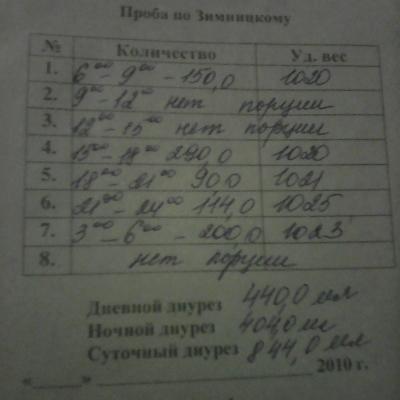 Проба по Зимницкому
№ Количество Уд. вес
1. 6⁰⁰ - 9⁰⁰ - 150,0 1020
2. 9⁰ - 12⁰ нет порции
3. 12⁰⁰ - 15⁰⁰ нет порции
4. 15⁰⁰ - 18⁰⁰ 290,0 1020
5. 18⁰⁰ - 21⁰⁰ 90,0 1021
6. 21⁰⁰ - 24⁰⁰ 114,0 1025
7. 3⁰⁰ - 6⁰⁰ - 200,0 1023
8. нет порции
Дневной диурез 440,0 мл
Ночной диурез 404,0 мл
Суточный диурез 844,0 мл
«____» ____________ 2010 г.